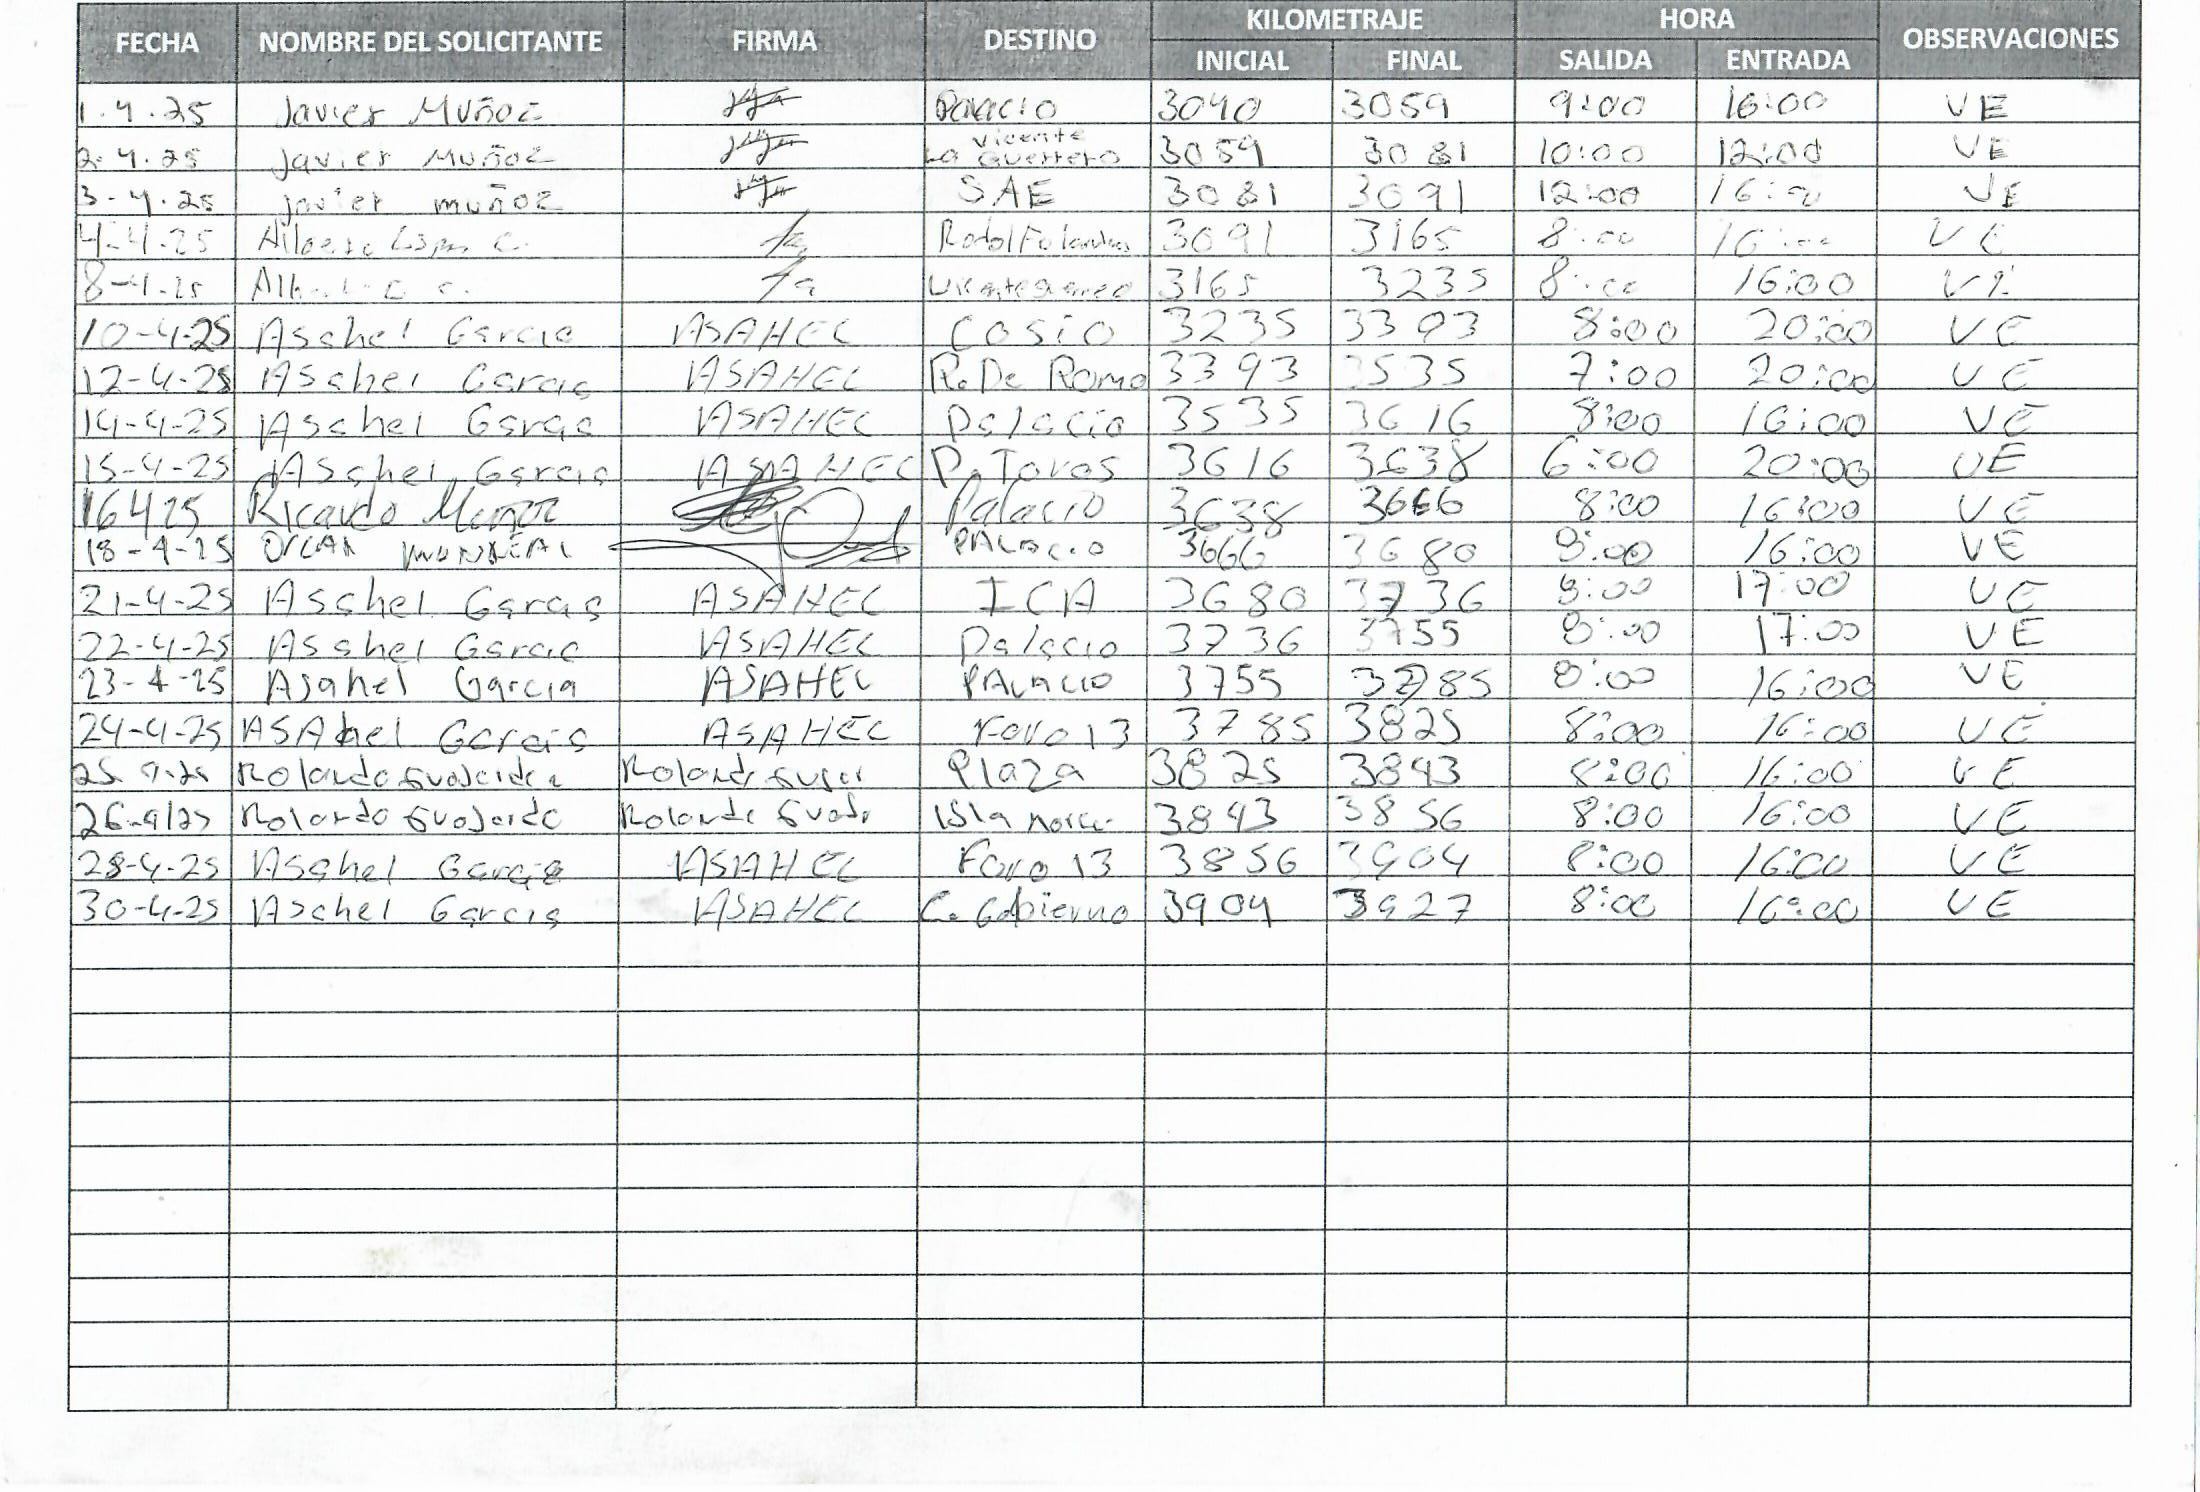 FECHA NOMBRE DEL SOLICITANTE FIRMA DESTINO KILOMETRAJE HORA OBSERVACIONES
INICIAL FINAL SALIDA ENTRADA
1.4.25 Javier Muñoz Palacio 3040 3059 9:00 16:00 VE
2.4.25 Javier Muñoz Vicente Guerrero 3059 3081 10:00 12:00 VE
3-4.25 javier muñoz SAE 3081 3091 12:00 VE
4-4-25 3091 3165 8:00 16:00 VE
8-4-25 3165 3235 8:00 16:00
10-4-25 Asahel Garcia ASAHEL Cosio 3235 3393 8:00 20:00 VE
12-4-25 Asahel Garcia ASAHEL R. De Romo 3393 3535 7:00 20:00 VE
14-4-25 Asahel Garcia ASAHEL Palacio 3535 3616 8:00 16:00 VE
15-4-25 Asahel Garcia ASAHEL P. Toros 3616 3638 6:00 20:00 VE
16 4 25 Ricardo Muñoz Palacio 3638 3666 8:00 16:00 VE
18-4-25 PALACIO 3666 3680 8:00 16:00 VE
21-4-25 Asahel Garcia ASAHEL ICA 3680 3736 8:00 17:00 VE
22-4-25 Asahel Garcia ASAHEL Palacio 3736 3755 8:00 17:00 VE
23-4-25 Asahel Garcia ASAHEL PALACIO 3755 3785 8:00 16:00 VE
24-4-25 ASAhel Garcia ASAHEL Foro 13 3785 3825 8:00 16:00 VE
25 4-25 Rolando Plaza 3825 3843 8:00 16:00 VE
26-4/25 Rolando Isla 3843 3856 8:00 16:00 VE
28-4-25 Asahel Garcia ASAHEL Foro 13 3856 3904 8:00 16:00 VE
30-4-25 Asahel Garcia ASAHEL C. Gobierno 3904 3927 8:00 16:00 VE